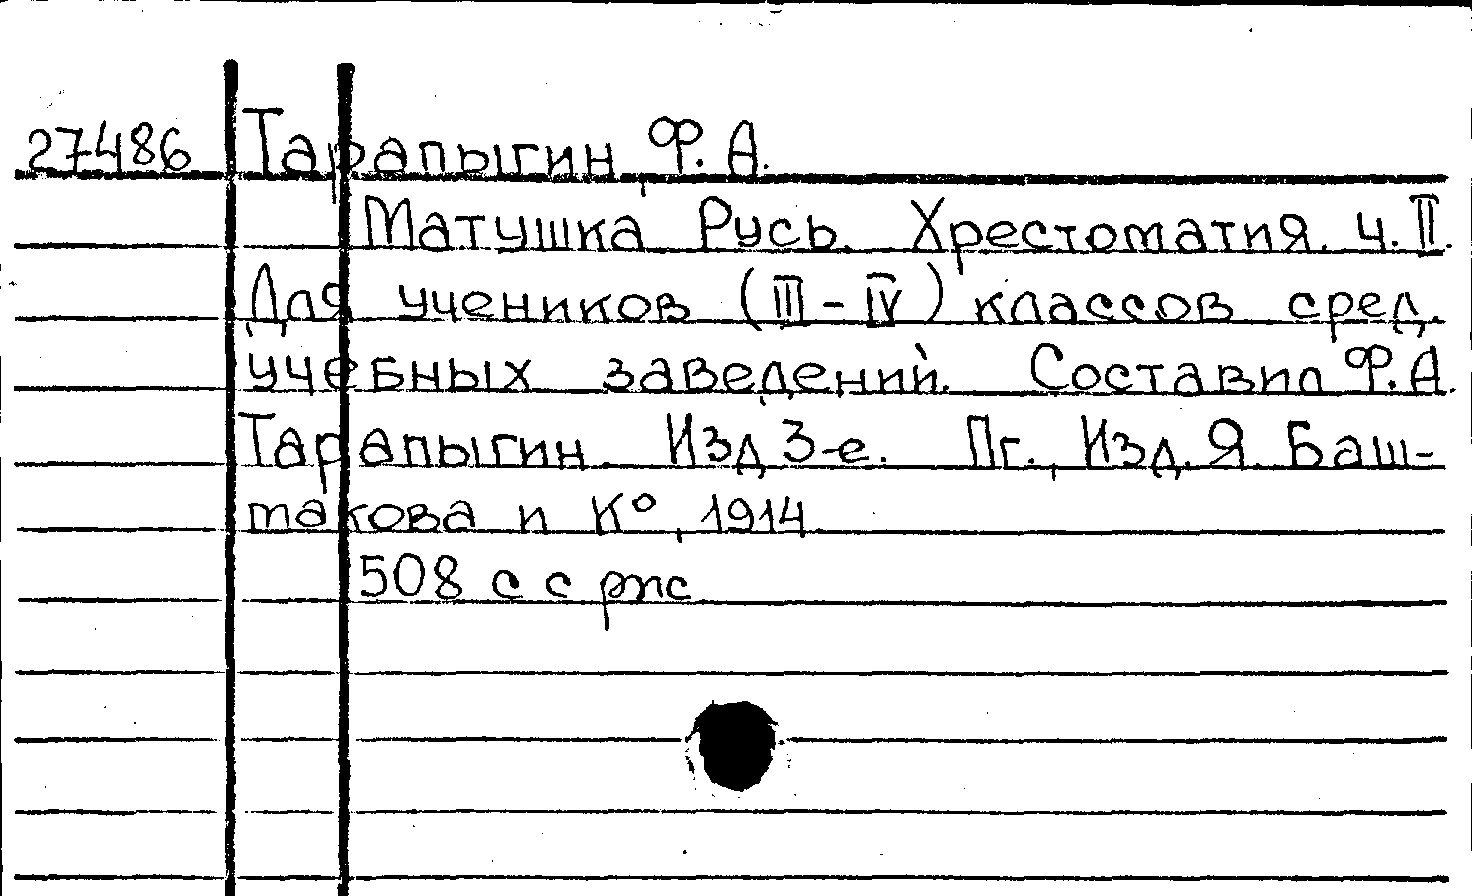 27486 Тарапыгин, Ф. А.
Матушка Русь. Хрестоматия. ч. II.
Для учеников (III - IV) классов сред.
учебных заведений. Составил Ф. А.
Тарапыгин. Изд 3-е. Пг., Изд. Я. Баш-
макова и К°, 1914.
508 с с рис.